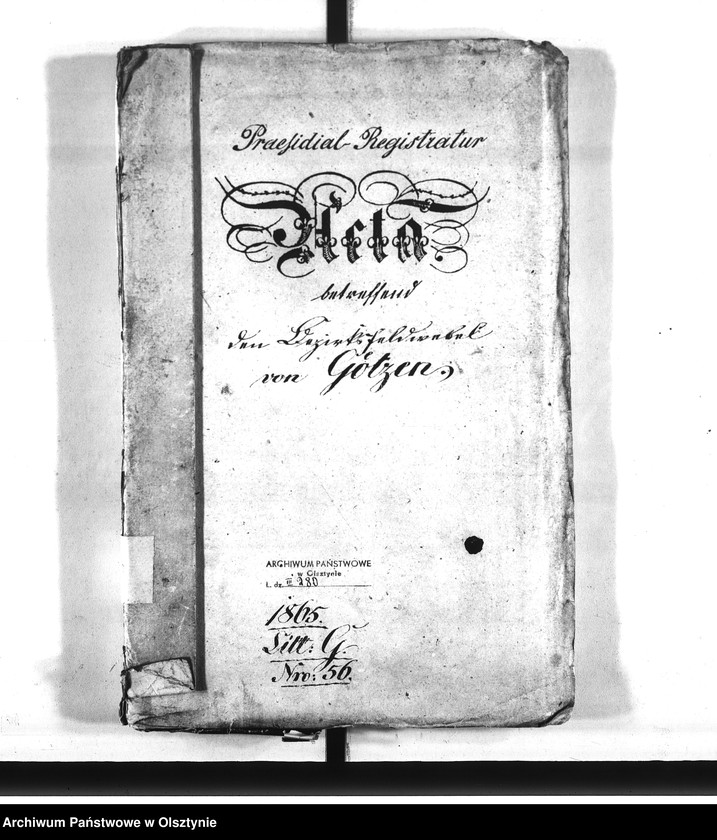 Praesidial-Registratur
Acta
betreffend
den Bezirksfeldwebel
von Götzen,
ARCHIWUM PAŃSTWOWE
w Olsztynie
L. dz. III 280
1865.
Litt: G.
Nro: 56.
Archiwum Państwowe w Olsztynie